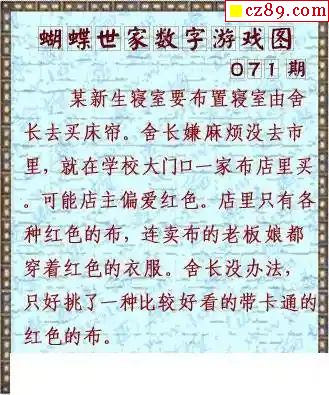 cz89.com
蝴蝶世家数字游戏图
071期
某新生寝室要布置寝室由舍
长去买床帘。舍长嫌麻烦没去市
里，就在学校大门口一家布店里买
。可能店主偏爱红色。店里只有各
种红色的布，连卖布的老板娘都
穿着红色的衣服。舍长没办法，
只好挑了一种比较好看的带卡通的
红色的布。